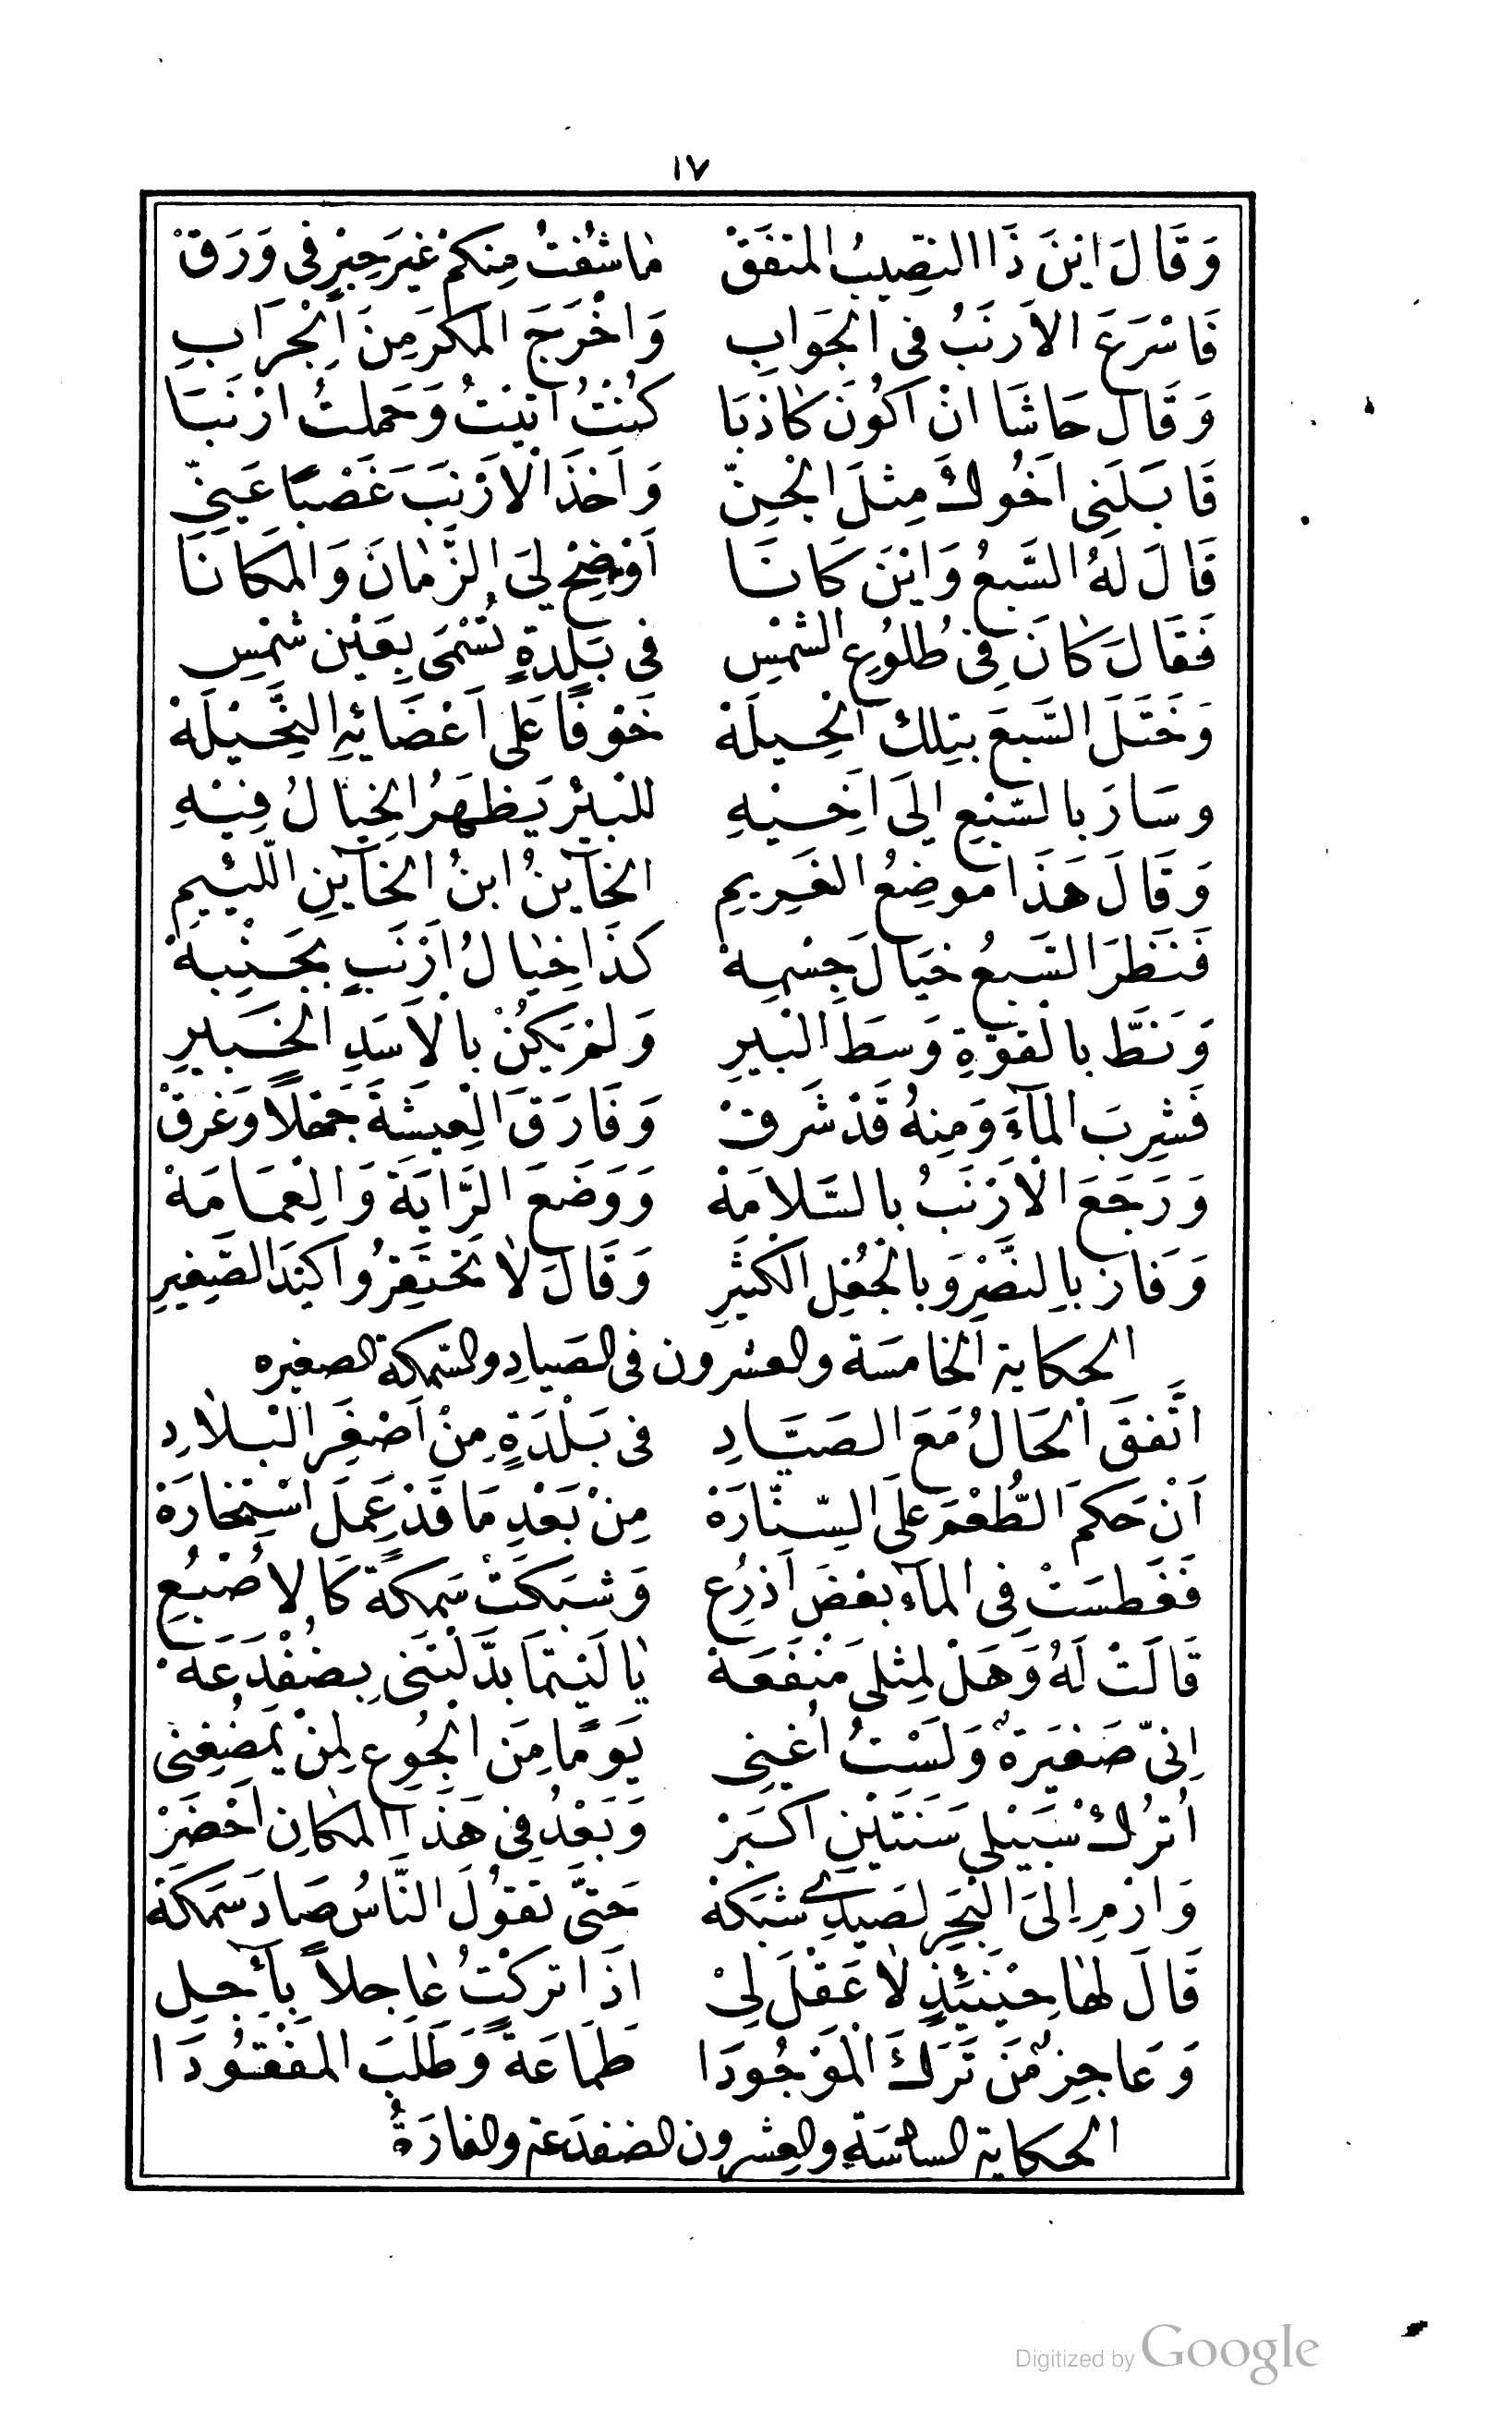 ١٧
وَقَالَ ايْنَ ذَا النصِيبُ المتفَقْ مٰا شُفْتُ مِنكُمْ غيَر حِبْرٍ فى وَرَقْ
فَاسْرَعَ الاَرنَبُ فِى الجَوَابِ وَاخْرَجَ المَكرَ مِنَ الْجِرَابِ
وَقَالَ حَاشَا انْ اَكُونَ كٰاذبَا كُنْتُ اتيْتُ وَحَملتُ ارْنَبَا
قَابَلَنِى اَخُوكْ مِثلَ الْجِنِّ وَاَخذَ الْارْنبَ غَصْبًا عَنِّى
قَالَ لَهُ السَّبعُ وَايْنَ كَانَا اَوْضِحْ لِىَ الزَّمٰانَ وَالمَكَانَا
فَقَالَ كٰانَ فِى طُلُوُعِ الشمْسِ فى بَلدةٍ تُسْمَى بِعَيْن شمْسِ
وَخَتَلَ السَّبعَ بتِلكْ الحِيلَهْ خَوْفًا عَلى اَعْضَائِهِ النَّحِيْلَهْ
وسَارَ بالسَّبْعِ اِلَى اَخِيْهِ للبْيرْ يَظهَرُ الخِيٰالُ فِيْهِ
وَقَالَ هَذَا موضِعُ الغَرِيمِ الخآينُ ابنُ الخآيِنِ اللّئيمِ
فَنَظَرَ السَّبعُ خيَالَ جِسْمِهْ كذَا خِيٰالُ اَرْنَبٍ بجَنْبِهْ
وَنَطَّ بالْقوّةِ وَسَطَ البْيرِ وَلمْ يَكُنْ بالْاَسَدِ الخَبيرِ
فَشرِبَ المآءَ وَمِنهُ قَدْ شَرِقْ وَفَارَقَ الْعِيشَةَ جَهْلًا وَغرقْ
وَرَجَعَ الْارْنَبُ بالسَّلَامَهْ وَوَضَعَ الرَّايَةَ وَالعِمَامَهْ
وَفازَ بالِنصْرِ وَبالجُعْلِ الكثيَرِ وَقَالَ لاٰ تَحْتَقِرُوا كيْدَ الصَّغِيرِ
الحكاية الخامسَة والعشرون فى الصَيادِ والسّمكة الصغيره
اتَّفقَ الحَالُ مَعَ الصَيَّادِ فى بَلْدَةٍ مِنْ اَصْغَرِ الْبلاٰدِ
اَنْ حَكمَ الطُّعْمَ عَلَى السِّنَّارَهْ مِنْ بَعْدِ مَا قَدْ عَمِلَ اسْتِخَارَهْ
فَغَطسَتْ فِى المآء بعْضَ اَذرُعِ وَشبَكَتْ سَمكةً كَالاُصْبُعِ
قَالَتْ لَهُ وَهَلْ لِمثلى مَنْفَعَهْ يٰا لَيْتمَا بَدَّلْتَنى بِضُفْدَعَهْ
اِنّى صَغيَرةٌ وَلَسْتُ اُغنِى يَومًا مِنَ الجُوعِ لِمنْ يَمضُغنِى
اُترُكْ سَبيْلى سَنتَيْنِ اَكبَرْ وَبَعْدُ فِى هَذَا المَكٰانِ اَحْضَرْ
وَارْمِ اِلَى البَحْرِ لصَيدِى شبَكَهْ حَتّى تقوُلَ النَّاسُ صَادَ سَمَكَهْ
قَالَ لهٰا حِيْنَئِذٍ لاٰ عَقْلَ لِىْ اذَا ترَكْتُ عٰاجلاً بِآجِلِ
وَعَاجِزٌ مَنْ تَرَكَ الْمَوْجُودَا طَمَاعَةً وَطَلَبَ المَفْقُودَا
الحكاية السادسَة والعِشرون الضفدَعة والفارَةُ
Digitized by Google